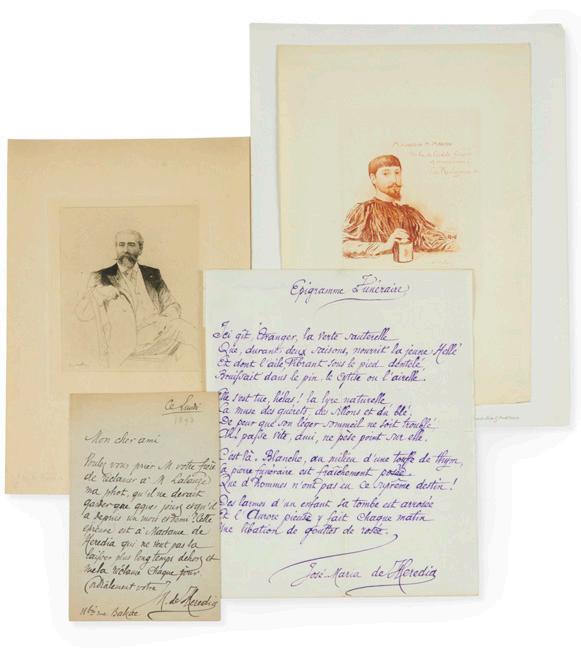 Epigramme Funéraire
Ici gît, Étranger, la verte sauterelle
Que, durant deux saisons, nourrit la jeune Hellé
Et dont l'aile vibrant sous le pied dentelé
Bruissait dans le pin, le cytise ou l'airelle.
Elle s'est tue, hélas! la lyre naturelle
La muse des guérets, des sillons et du blé;
De peur que son léger sommeil ne soit troublé
Ah! passe vite, ami, ne pèse point sur elle.
C'est là. Blanche, au milieu d'une touffe de thym,
Sa pierre funéraire est fraîchement posée
Que d'hommes n'ont pas eu ce suprême destin!
Des larmes d'un enfant sa tombe est arrosée
Et l'Aurore pieuse y fait chaque matin
Une libation de gouttes de rosée.
José-Maria de Heredia
Ce Lundi
1893
Mon cher ami
Voulez vous prier M. votre frère
de réclamer à M. Lalauze
ma phot. qu'il ne devait
garder que qques jours et qu'il
a depuis un mois et demi. Cette
épreuve est à Madame de
Heredia qui ne veut pas la
laisser plus longtemps dehors et
me la réclame chaque jour.
Cordialement votre
JM. de Heredia
11 bis rue Balzac